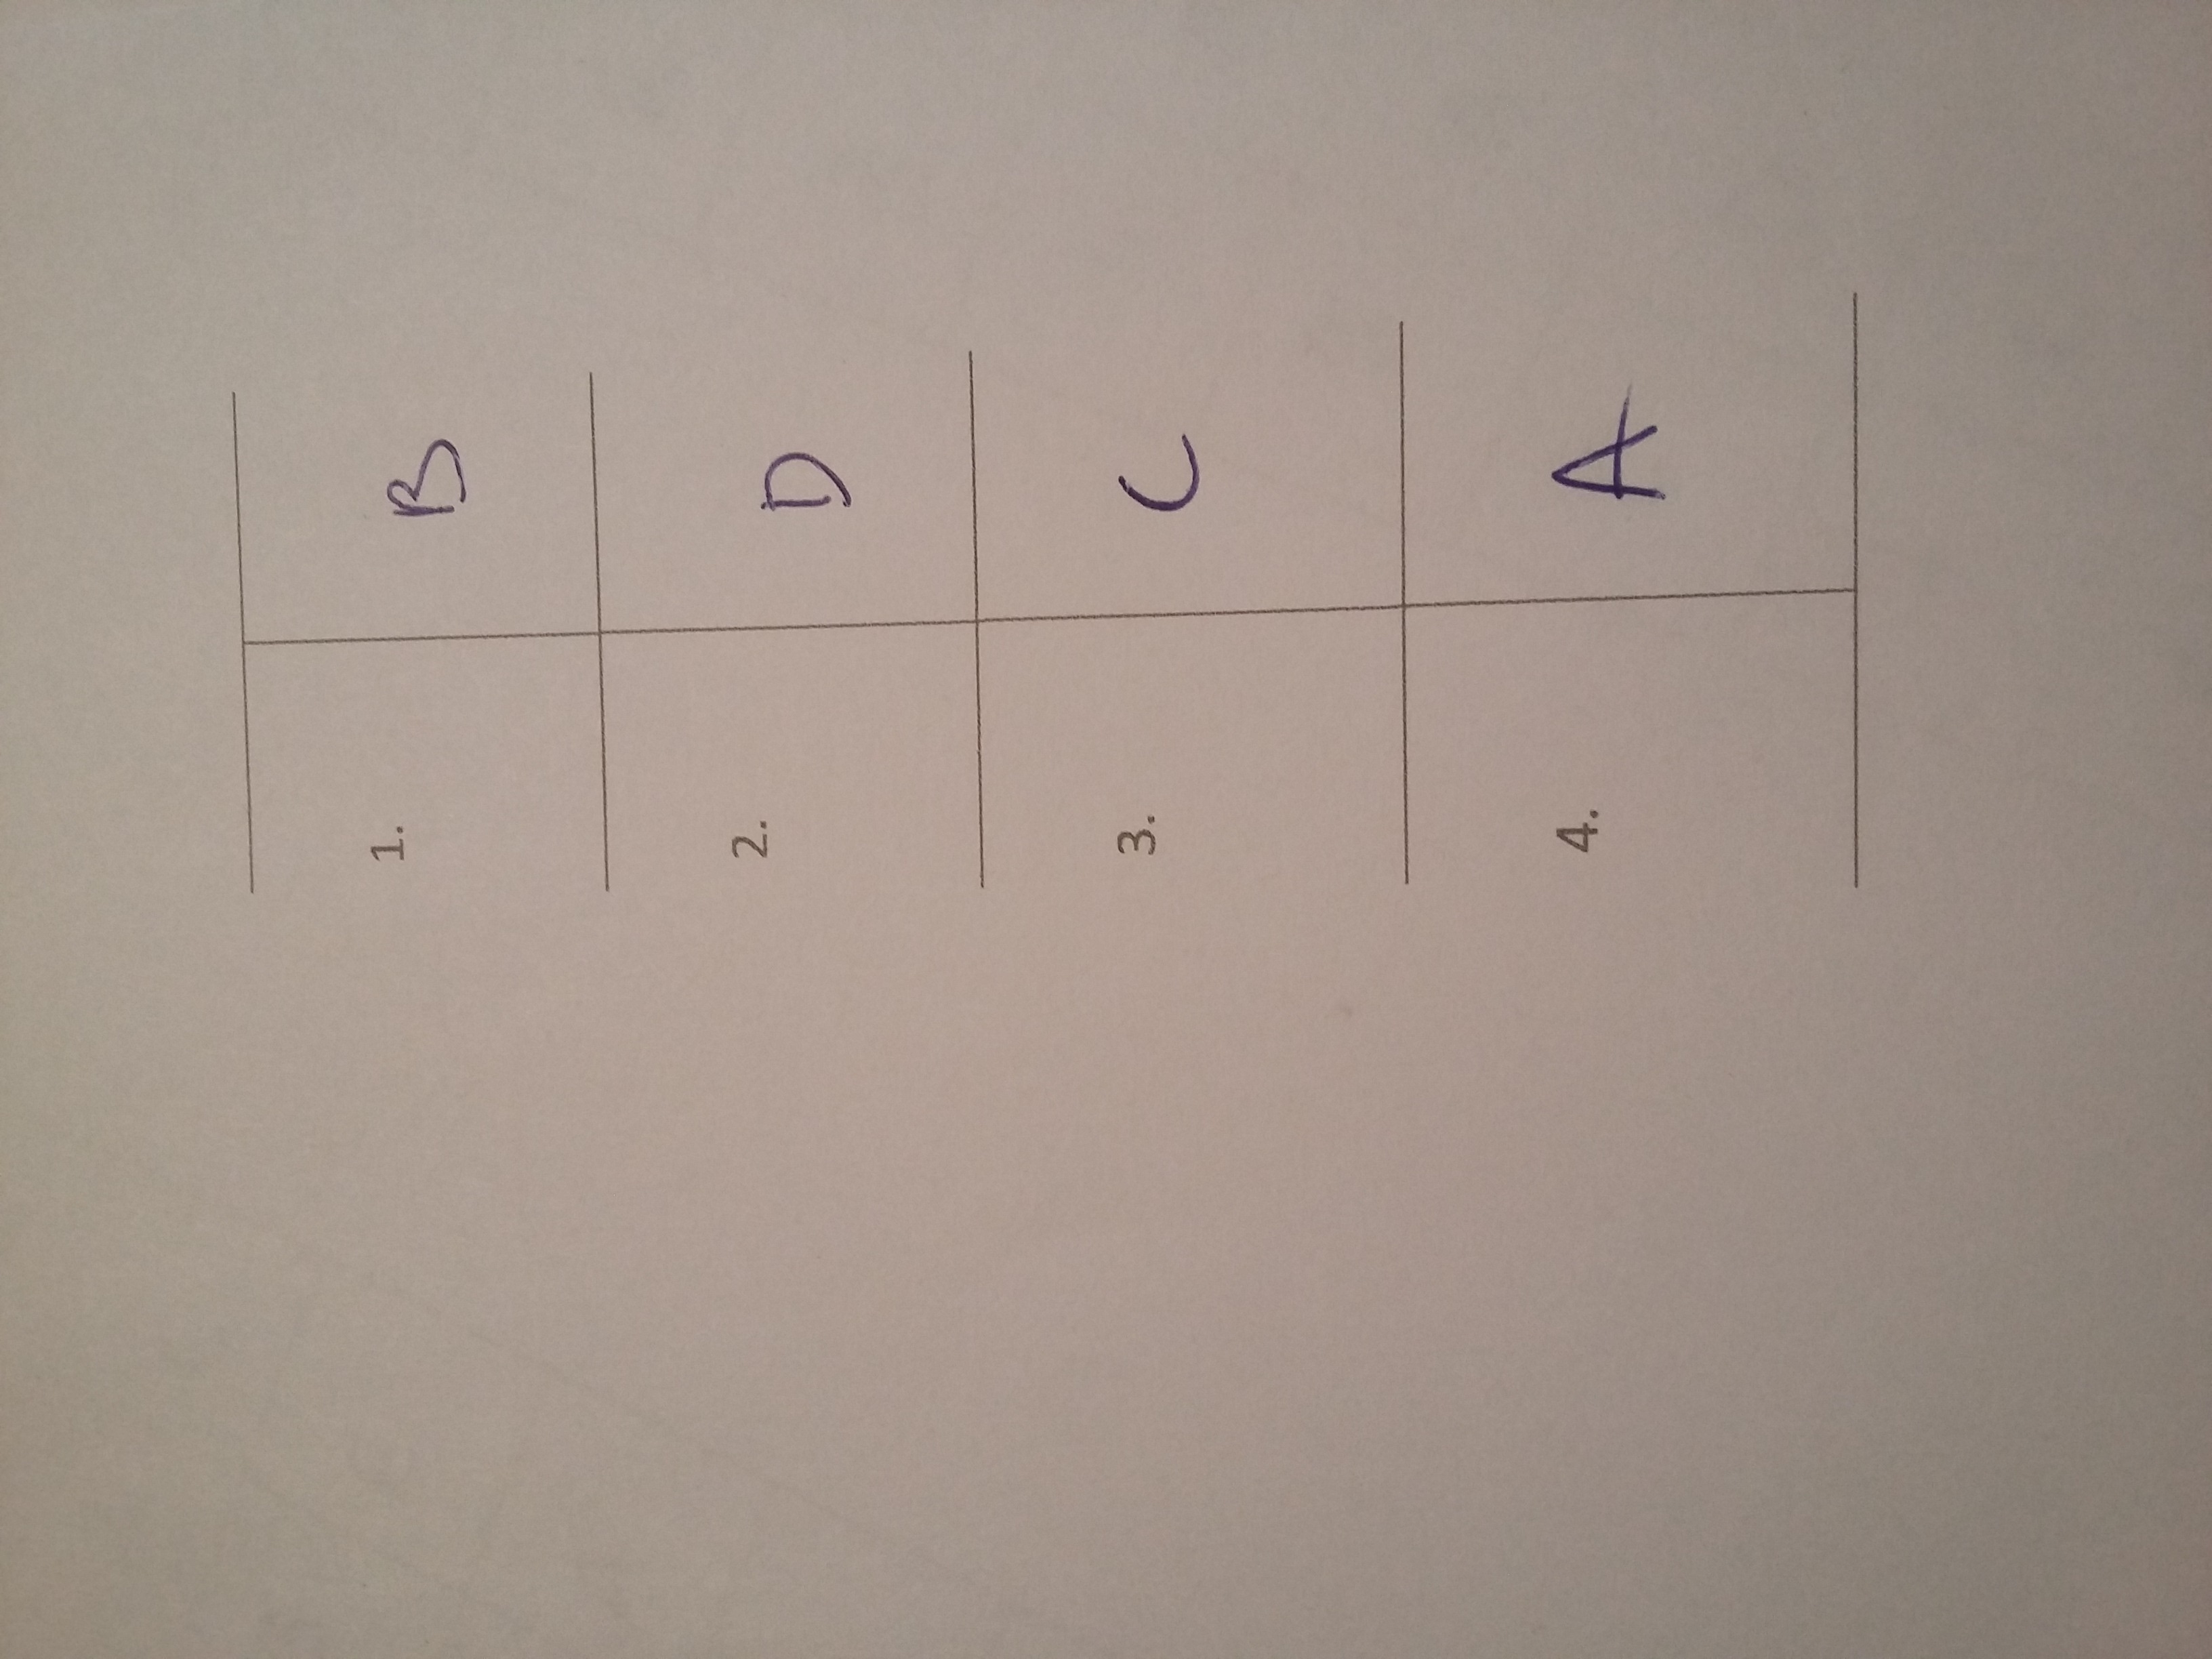 1. B
2. D
3. C
4. A